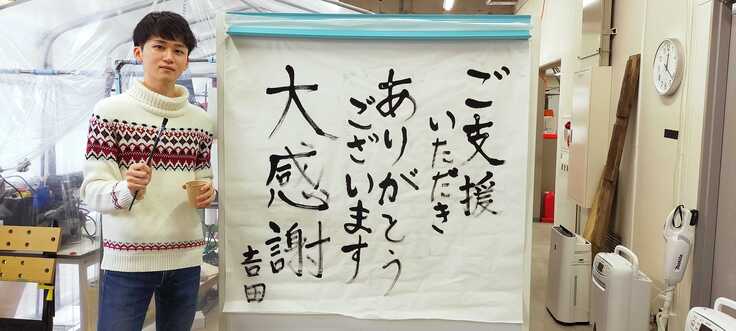 ご支援
いただき
ありがとう
ございます
大感謝
吉田
makita